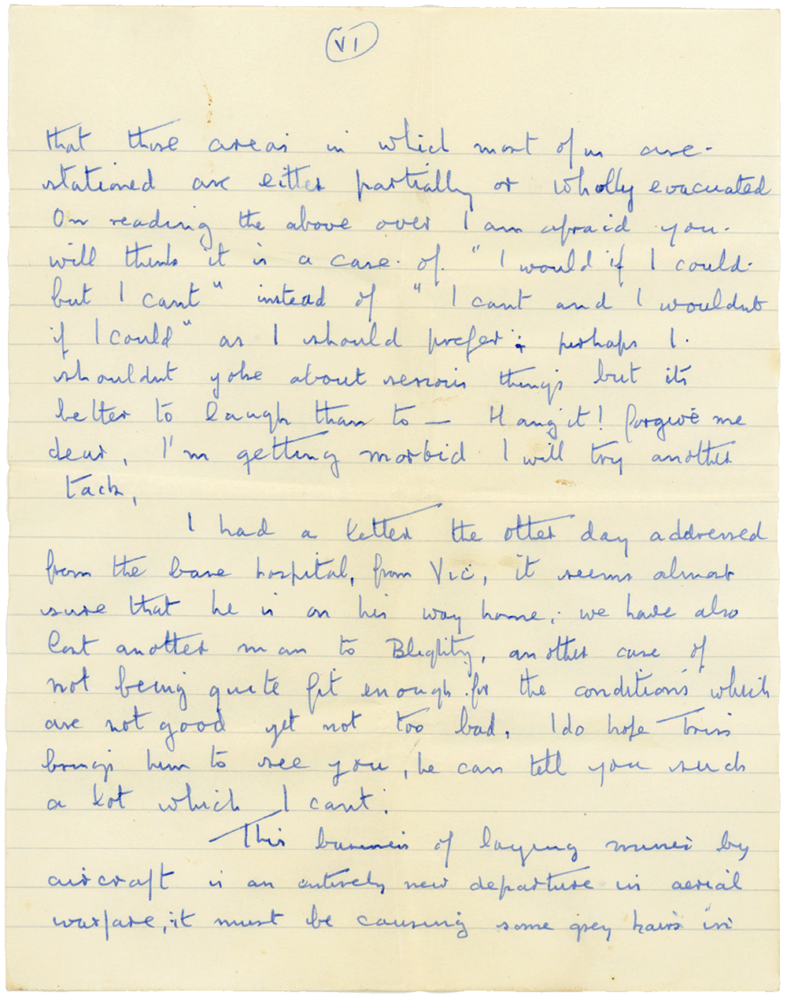 VI
that those areas in which most of us are
stationed are either partially or wholly evacuated
On reading the above over I am afraid you
will think it is a case of "I would if I could
but I cant" instead of "I cant and I wouldnt
if I could" as I should prefer; perhaps I
shouldnt yoke about serious things but its
better to laugh than to — Hang it! forgive me
dear, I'm getting morbid I will try another
tack,
I had a letter the other day addressed
from the base hospital, from Vic, it seems almost
sure that he is on his way home; we have also
lost another man to Blighty, another case of
not being quite fit enough for the conditions which
are not good yet not too bad, I do hope
brings him to see you, he can tell you such
a lot which I cant.
This business of laying mines by
aircraft is an entirely new departure in aerial
warfare, it must be causing some grey hairs in